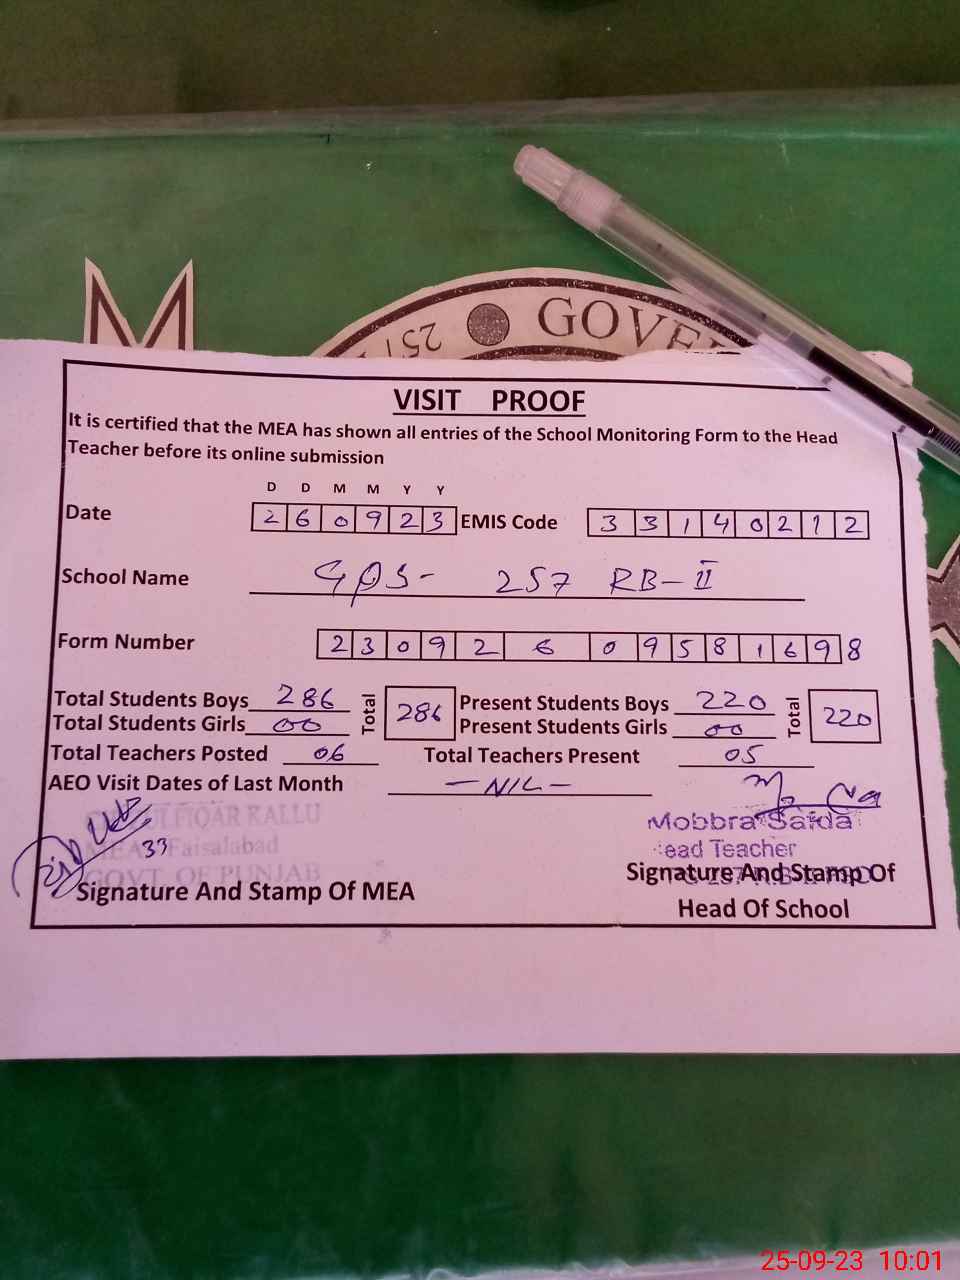 M
257
GOVE
VISIT PROOF
It is certified that the MEA has shown all entries of the School Monitoring Form to the Head
Teacher before its online submission
D D M M Y Y
Date 2 6 0 9 2 3 EMIS Code 3 3 1 4 0 2 1 2
School Name GPS- 257 RB-II
Form Number 2 3 0 9 2 6 0 9 5 8 1 6 9 8
Total Students Boys 286 Total 286 Present Students Boys 220 Total 220
Total Students Girls 00 Present Students Girls 00
Total Teachers Posted 06 Total Teachers Present 05
AEO Visit Dates of Last Month -NIL-
ULFIQAR KALLU
MEA 33 Faisalabad
GOVT. OF PUNJAB
Signature And Stamp Of MEA
Mobbra Saida
ead Teacher
Signature And Stamp Of
Head Of School
25-09-23 10:01